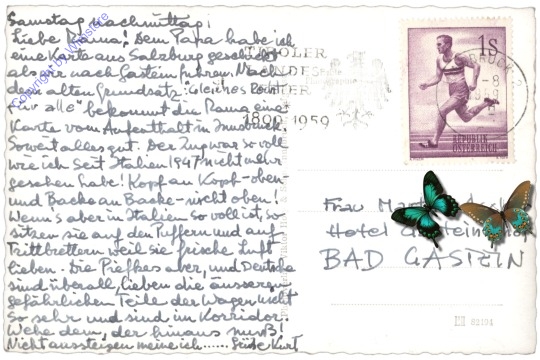 Samstag Nachmittag!
Liebe Mama! Dem Papa habe ich
eine Karte aus Salzburg geschickt
als wir nach Gastein fuhren. Nach
dem alten Grundsatz: "Gleiches Recht
für alle" bekommt die Mama eine
Karte vom Aufenthalt in Innsbruck.
Soweit alles gut. Der Zug war so voll
wie ich seit Italien 1947 nicht mehr
gesehen habe! Kopf an Kopf - oben -
und Backe an Backe - nicht oben!
Wenn's aber in Italien so voll ist, so
sitzen sie auf den Puffern und auf
Trittbrettern weil sie frische Luft
lieben. Die Piefkes aber, und Deutsche
sind überall, lieben die äusseren
gefährlichen Teile der Wagen nicht
so sehr und sind im Korridor.
Wehe dem, der hinaus muß!
Nicht aussteigen meine ich...... Kurt
Copyright by
TIROLER
LANDES
FEIER
1809 1959
1S
REPUBLIK
ÖSTERREICH
Frau
Hotel
BAD GASTEIN